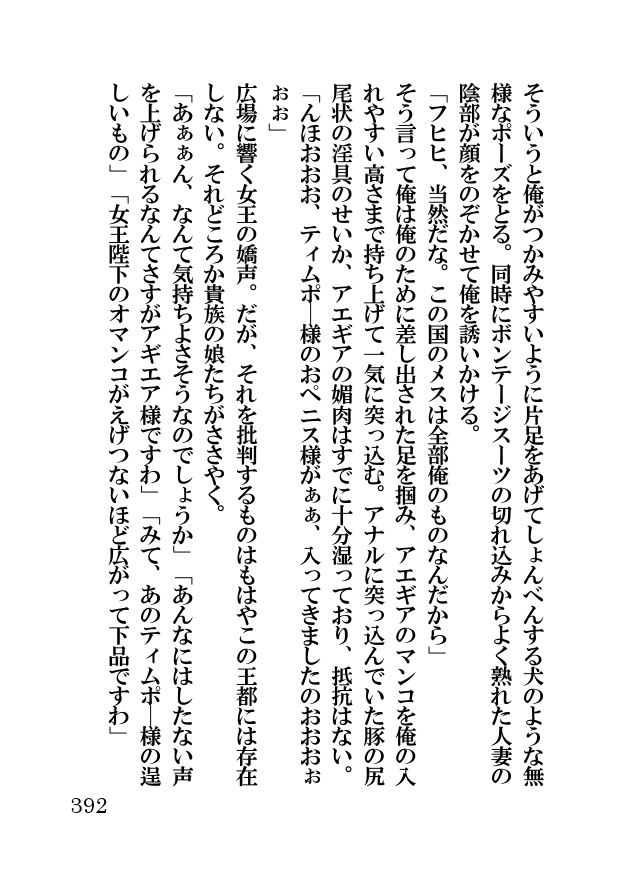 そういうと俺がつかみやすいように片足をあげてしょんべんする犬のような無
様なポーズをとる。同時にボンテージスーツの切れ込みからよく熟れた人妻の
陰部が顔をのぞかせて俺を誘いかける。
「フヒヒ、当然だな。この国のメスは全部俺のものなんだから」
そう言って俺は俺のために差し出された足を掴み、アエギアのマンコを俺の入
れやすい高さまで持ち上げて一気に突っ込む。アナルに突っ込んでいた豚の尻
尾状の淫具のせいか、アエギアの媚肉はすでに十分湿っており、抵抗はない。
「んほおおお、ティムポ―様のおペニス様がぁぁ、入ってきましたのおおおぉ
ぉぉ」
広場に響く女王の嬌声。だが、それを批判するものはもはやこの王都には存在
しない。それどころか貴族の娘たちがささやく。
「あぁぁん、なんて気持ちよさそうなのでしょうか」「あんなにはしたない声
を上げられるなんてさすがアギエア様ですわ」「みて、あのティムポ―様の逞
しいもの」「女王陛下のオマンコがえげつないほど広がって下品ですわ」
392